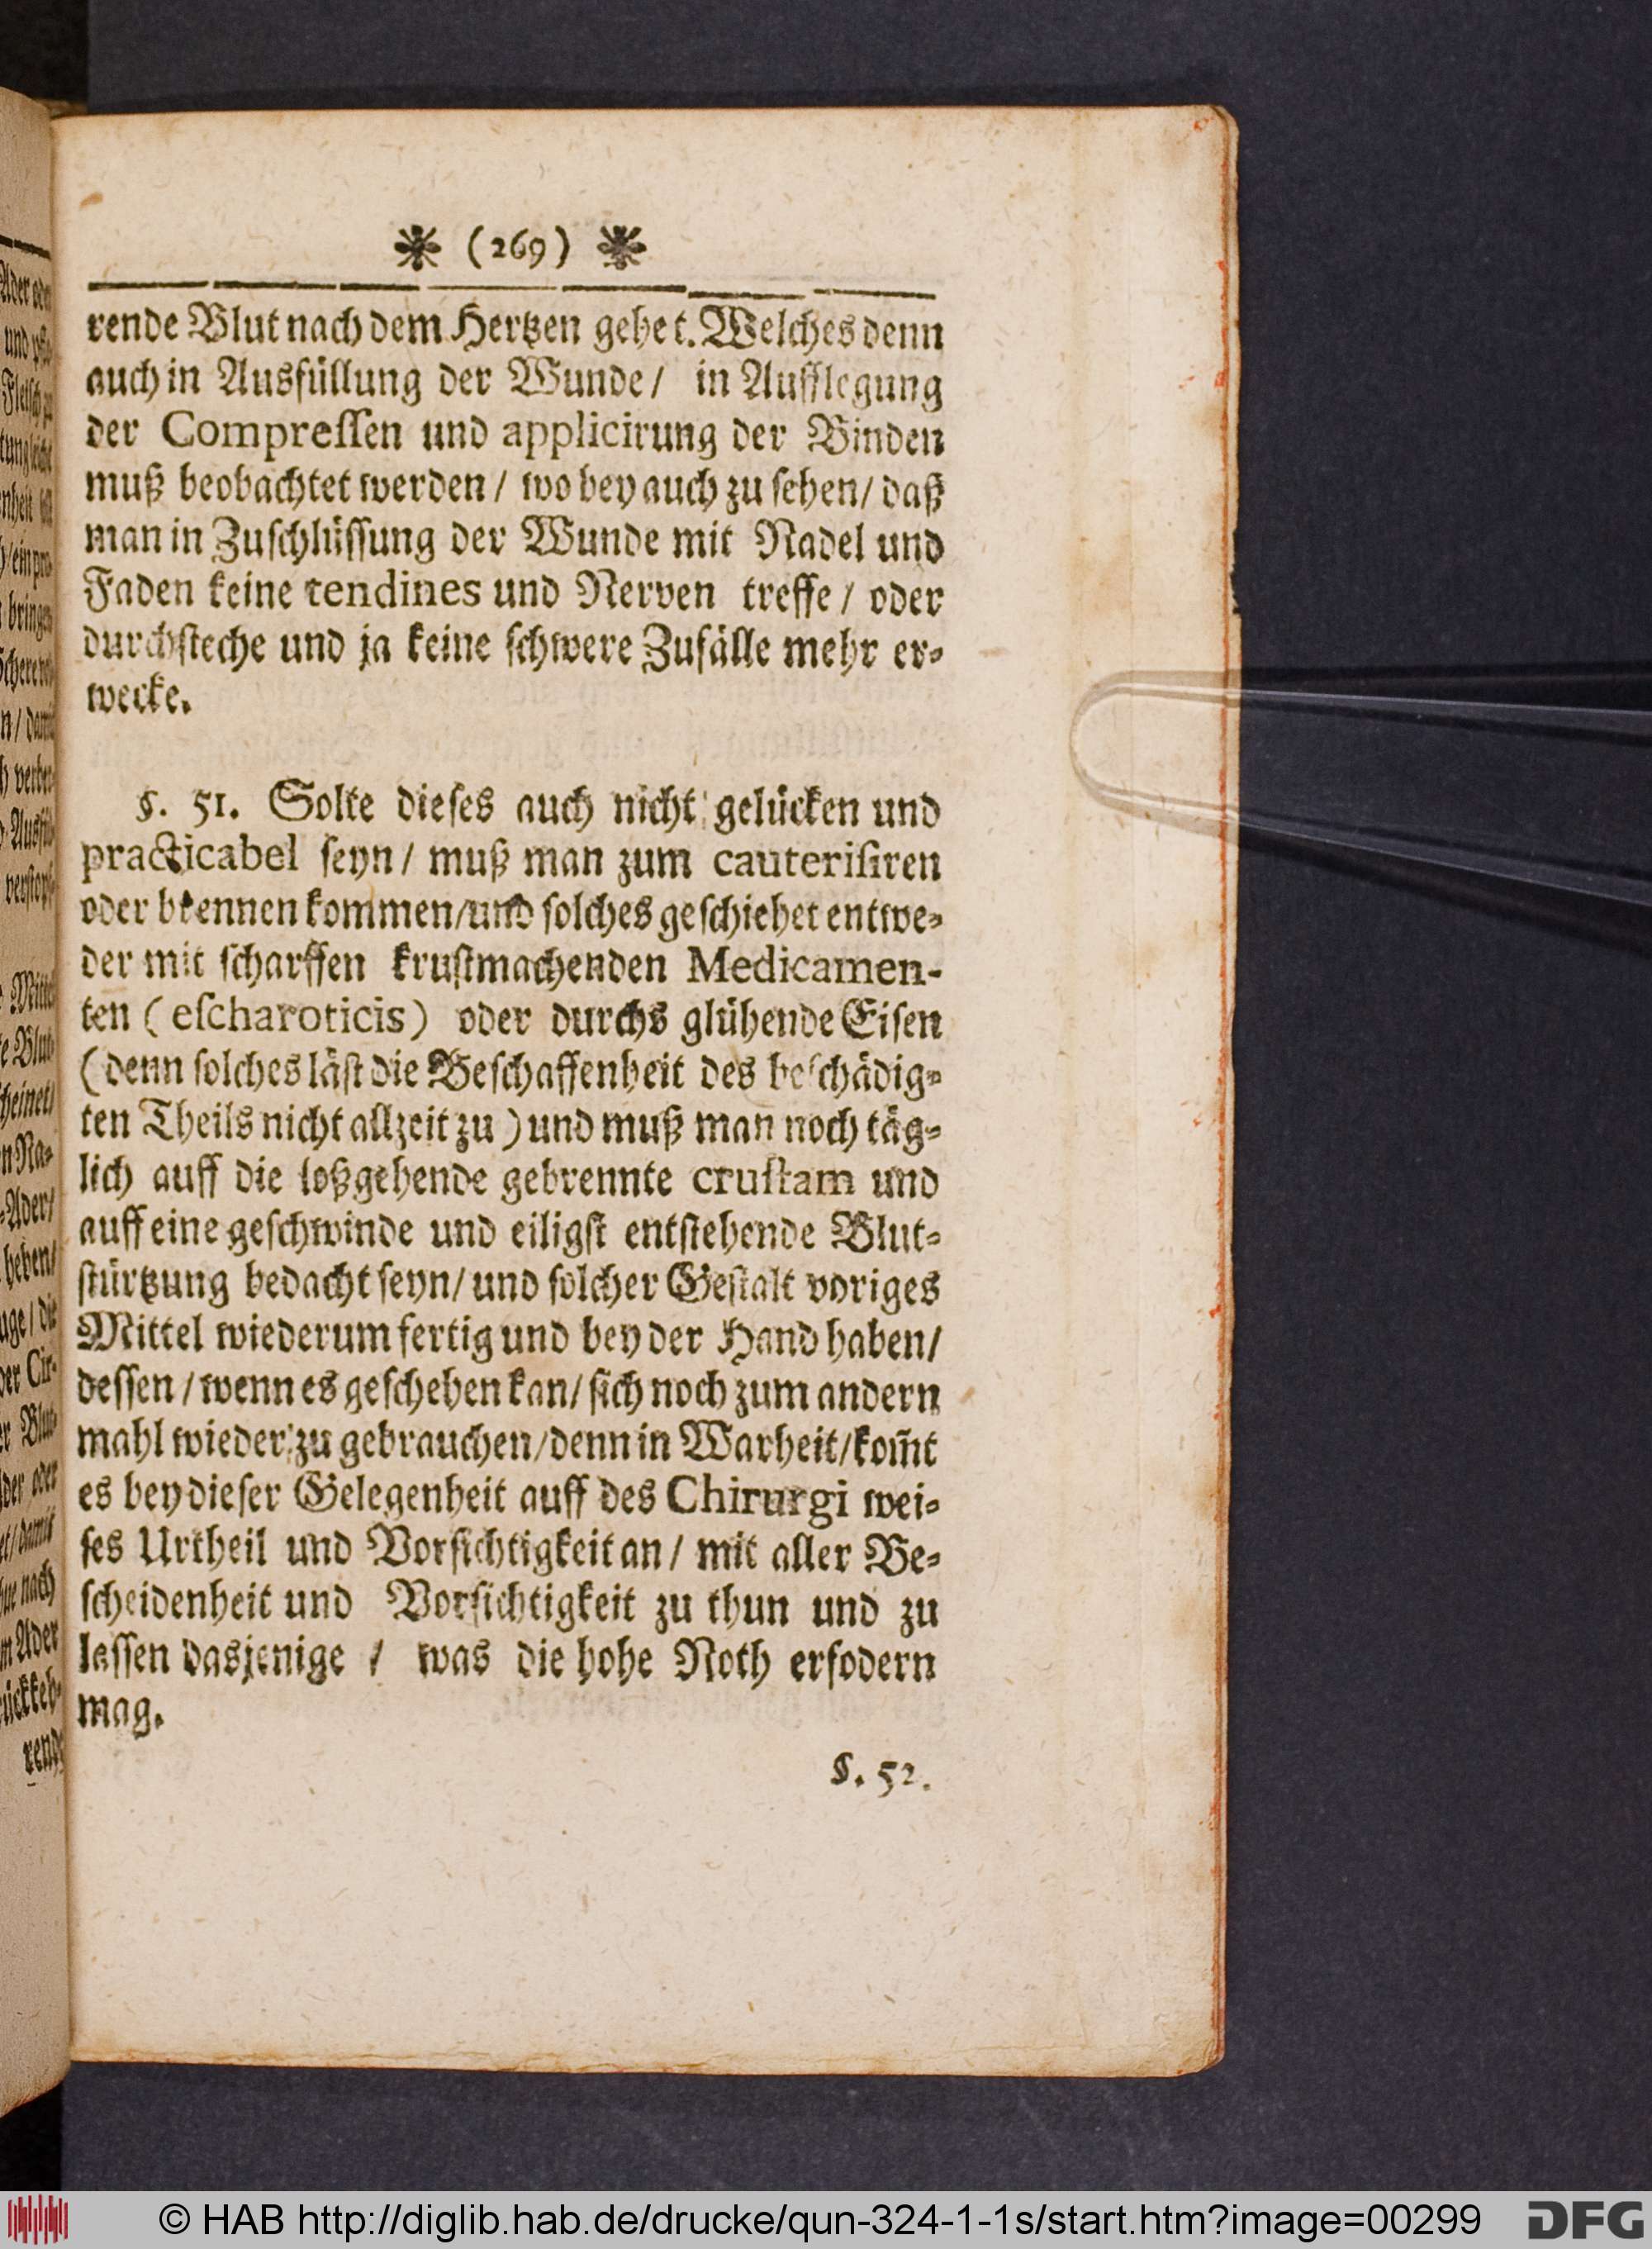 (269)
rende Blut nach dem Hertzen gehet. Welches denn
auch in Ausfüllung der Wunde/ in Aufflegung
der Compreſſen und applicirung der Binden
muß beobachtet werden/ wo bey auch zu ſehen/ daß
man in Zuſchlüſſung der Wunde mit Nadel und
Faden keine tendines und Nerven treffe/ oder
durchſteche und ja keine ſchwere Zufälle mehr er-
wecke.
§. 51. Solte dieſes auch nicht gelücken und
practicabel ſeyn/ muß man zum cauteriſiren
oder brennen kommen/und ſolches geſchiehet entwe-
der mit ſcharffen kruſtmachenden Medicamen-
ten (eſcharoticis) oder durchs glühende Eiſen
(denn ſolches läſt die Beſchaffenheit des beſchädig-
ten Theils nicht allzeit zu) und muß man noch täg-
lich auff die loßgehende gebrennte cruſtam und
auff eine geſchwinde und eiligſt entſtehende Blut-
ſtürtzung bedacht ſeyn/ und ſolcher Geſtalt voriges
Mittel wiederum fertig und bey der Hand haben/
deſſen/ wenn es geſchehen kan/ ſich noch zum andern
mahl wieder zu gebrauchen/denn in Warheit/kom̃t
es bey dieſer Gelegenheit auff des Chirurgi wei-
ſes Urtheil und Vorſichtigkeit an/ mit aller Be-
ſcheidenheit und Vorſichtigkeit zu thun und zu
laſſen dasjenige / was die hohe Noth erfodern
mag.
§. 52.
© HAB http://diglib.hab.de/drucke/qun-324-1-1s/start.htm?image=00299
DFG